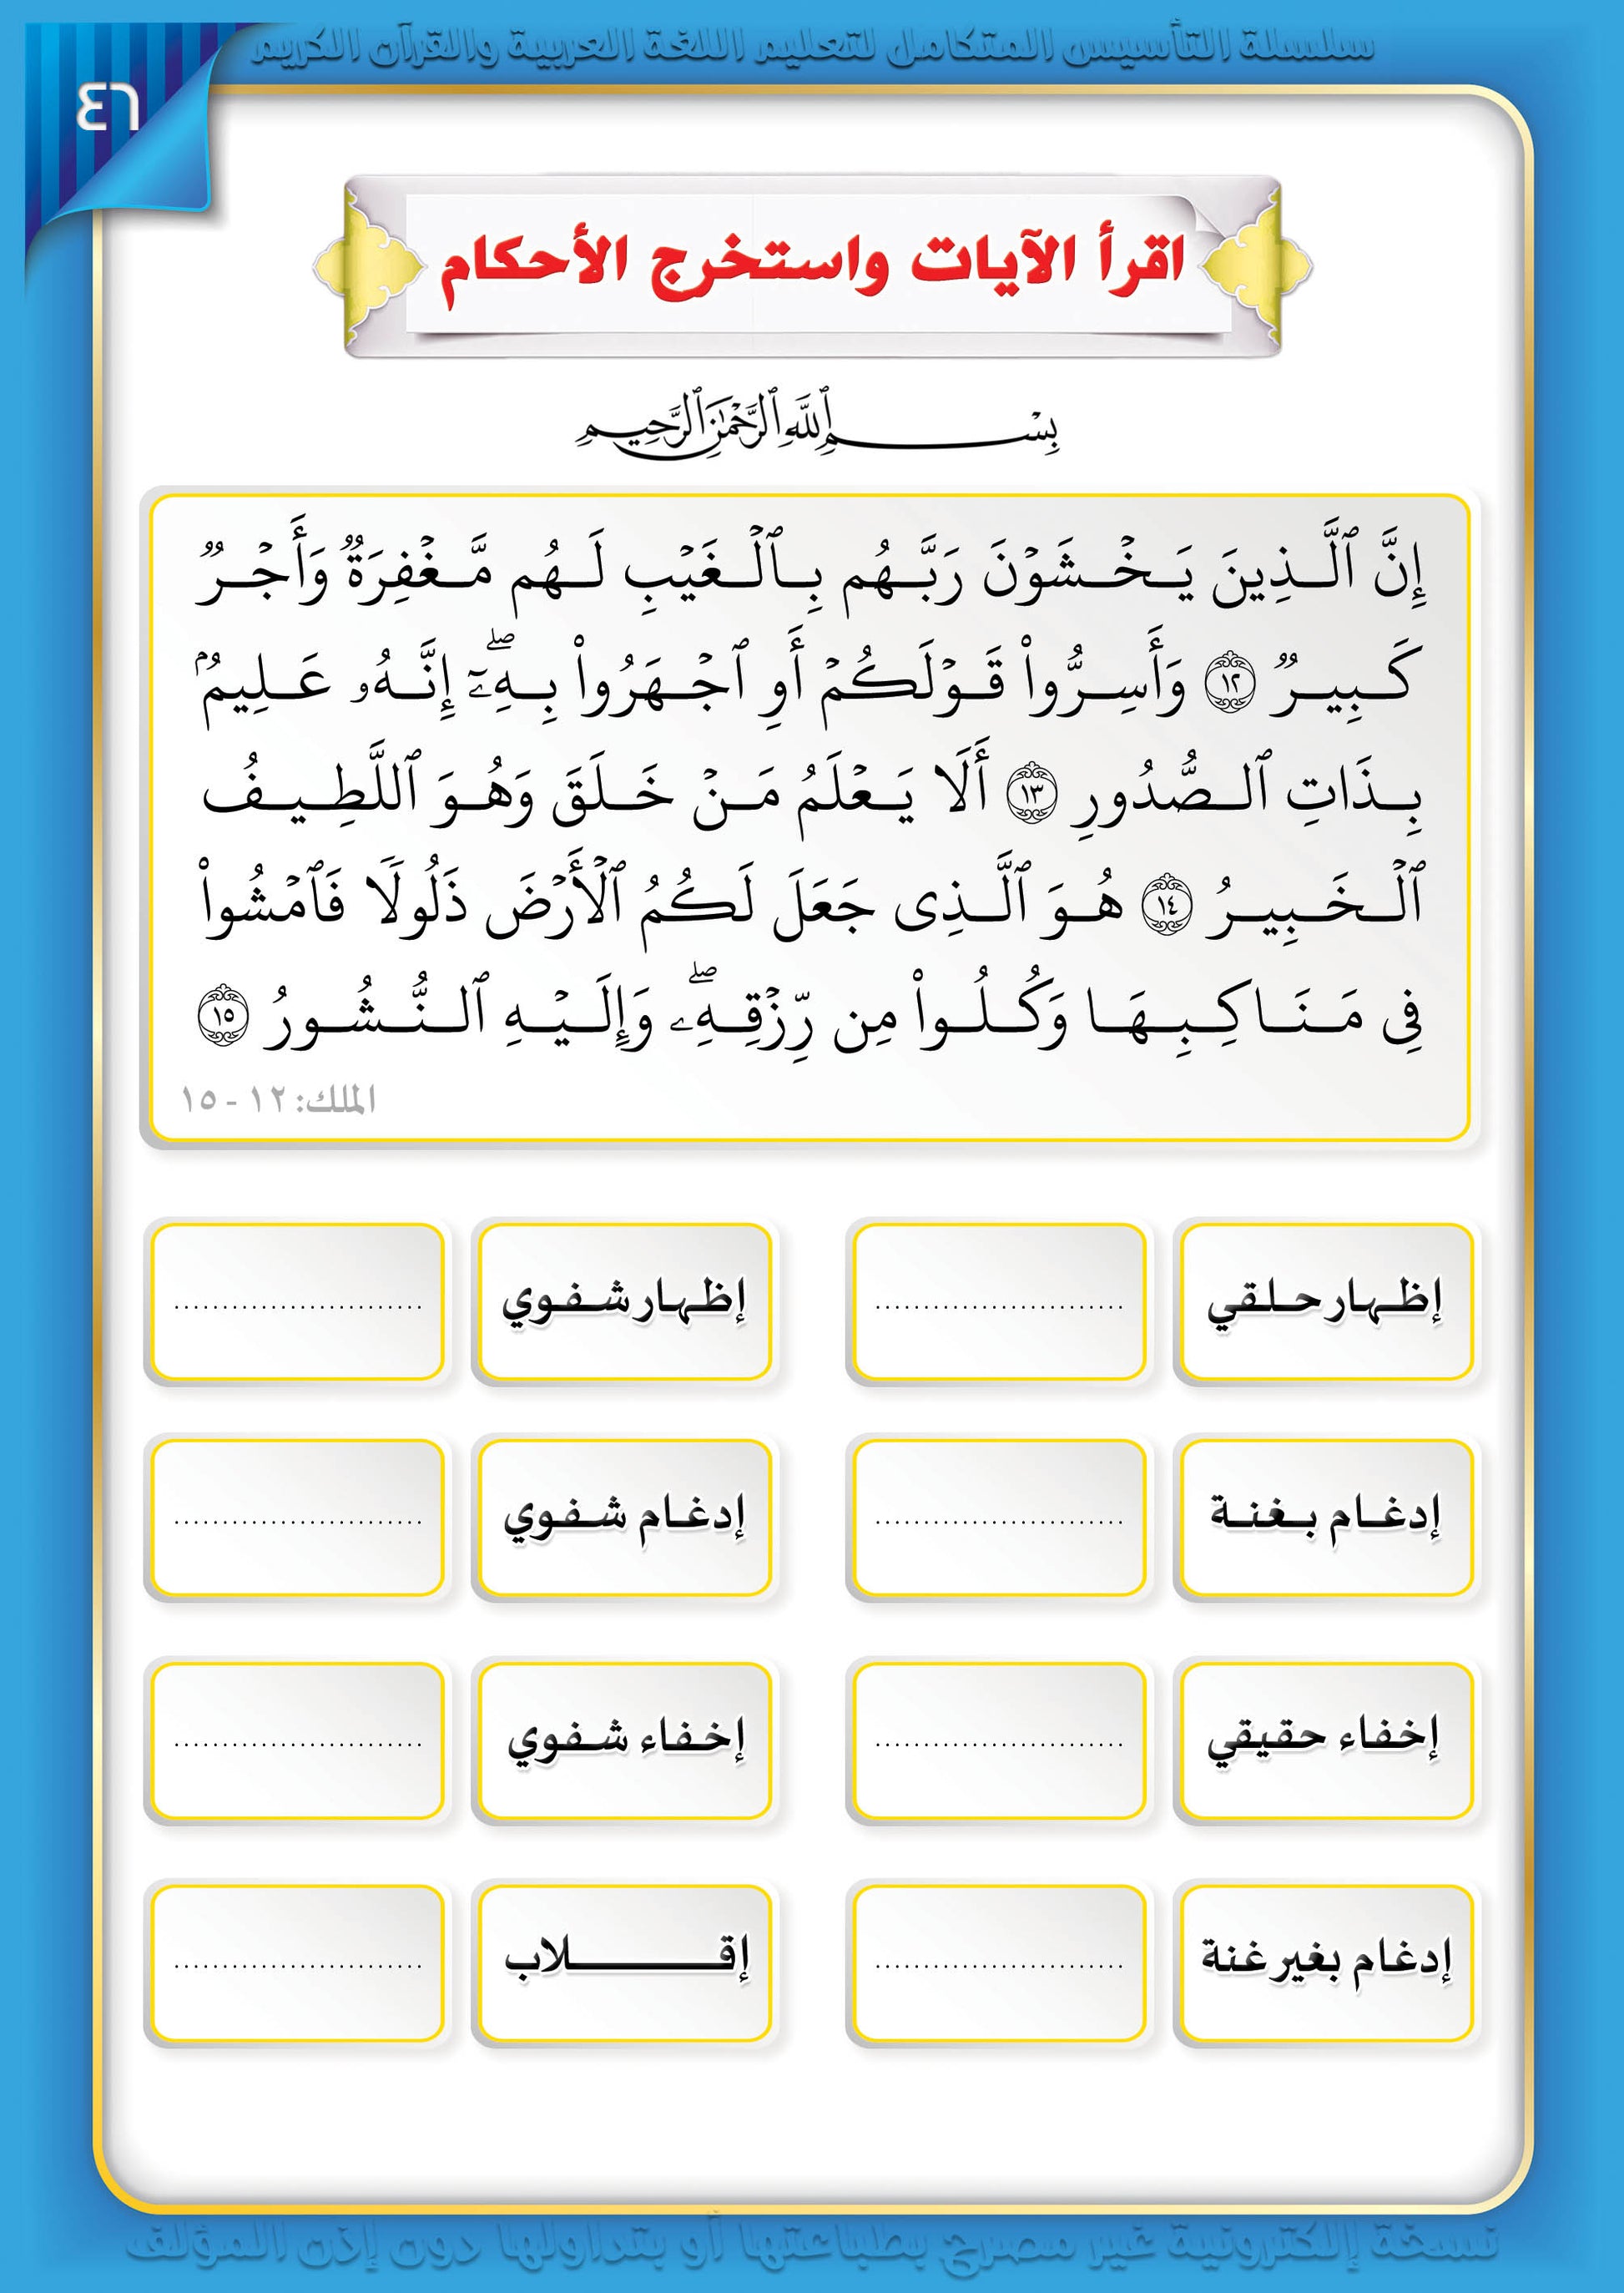 سلسلة التأسيس المتكامل لتعليم اللغة العربية والقرآن الكريم
٤٦
اقرأ الآيات واستخرج الأحكام
بِسْمِ ٱللَّهِ ٱلرَّحْمَٰنِ ٱلرَّحِيمِ
إِنَّ ٱلَّذِينَ يَخْشَوْنَ رَبَّهُم بِٱلْغَيْبِ لَهُم مَّغْفِرَةٌ وَأَجْرٌ
كَبِيرٌ ١٢ وَأَسِرُّوا۟ قَوْلَكُمْ أَوِ ٱجْهَرُوا۟ بِهِۦٓ ۖ إِنَّهُۥ عَلِيمٌۢ
بِذَاتِ ٱلصُّدُورِ ١٣ أَلَا يَعْلَمُ مَنْ خَلَقَ وَهُوَ ٱللَّطِيفُ
ٱلْخَبِيرُ ١٤ هُوَ ٱلَّذِى جَعَلَ لَكُمُ ٱلْأَرْضَ ذَلُولًا فَٱمْشُوا۟
فِى مَنَاكِبِهَا وَكُلُوا۟ مِن رِّزْقِهِۦ ۖ وَإِلَيْهِ ٱلنُّشُورُ ١٥
الملك: ١٢ - ١٥
إظهار حلقي ......................... إظهار شفوي .........................
إدغام بغنة ......................... إدغام شفوي .........................
إخفاء حقيقي ......................... إخفاء شفوي .........................
إدغام بغير غنة ......................... إقــــــلاب .........................
نسخة إلكترونية غير مصرح بطباعتها أو بتداولها دون إذن المؤلف